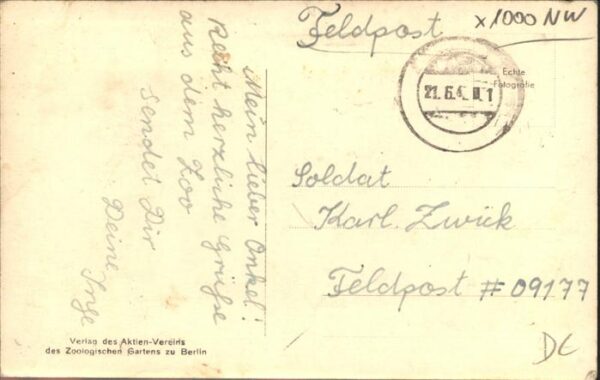 Mein lieber Onkel!
Recht herzliche Grüße
aus dem Zoo
sendet Dir
Deine Inge
Verlag des Aktien-Vereins
des Zoologischen Gartens zu Berlin
Feldpost
x1000 NW
Echte
Fotografie
21.6.
Soldat
Karl Zwick
Feldpost # 09177
DC